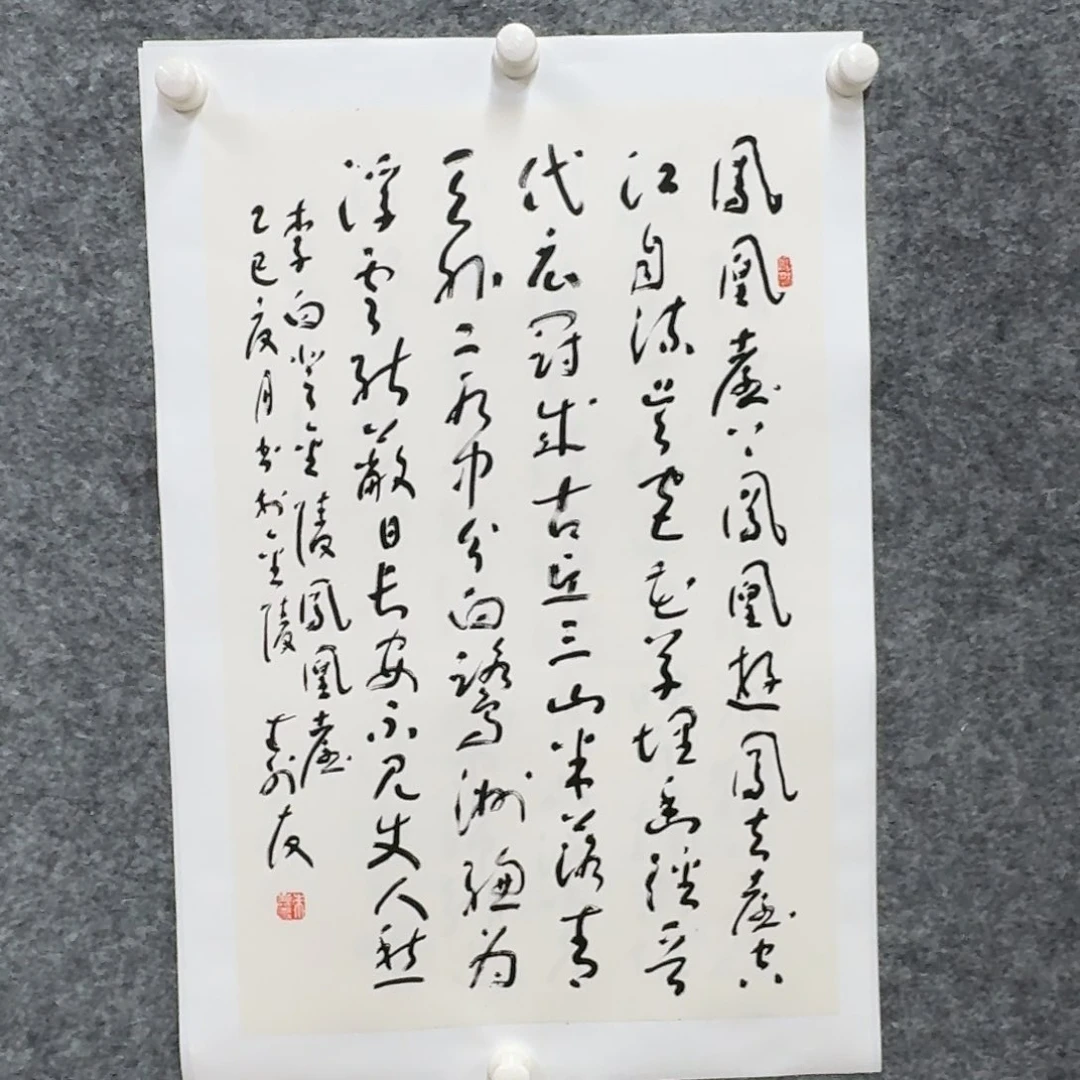 鳳凰臺上鳳凰遊鳳去臺空
江自流吳宮花草埋幽徑晉
代衣冠成古丘三山半落青
天外二水中分白鷺洲總為
浮雲能蔽日長安不見使人愁
李白登金陵鳳凰臺
乙巳夏月書於金陵